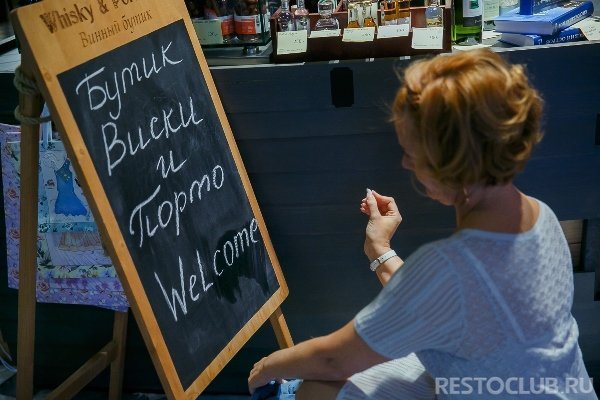 Whisky &
Винный бутик
Бутик
Виски
и
Порто
Welcome
RESTOCLUB.RU